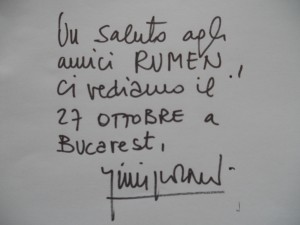 Un saluto agli
amici RUMENI,
ci vediamo il
27 OTTOBRE a
Bucarest,